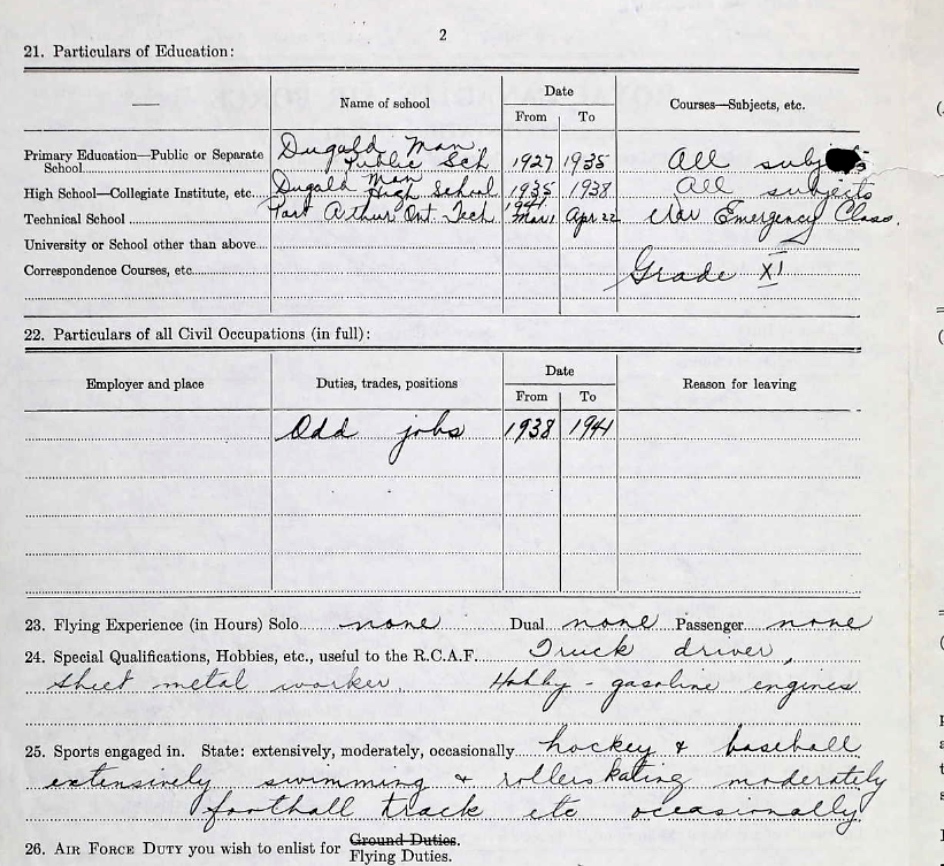 2
21. Particulars of Education:
Name of school Date Courses—Subjects, etc.
From To
Primary Education—Public or Separate School Dugald Man. Public Sch 1927 1935 All subjects
High School—Collegiate Institute, etc. Dugald Man High School 1935 1938 All subjects
Technical School Port Arthur Ont. Tech 1941 Mar 1 Apr 22 War Emergency Class.
University or School other than above
Correspondence Courses, etc. Grade XI
22. Particulars of all Civil Occupations (in full):
Employer and place Duties, trades, positions Date Reason for leaving
From To
Odd jobs 1938 1941
23. Flying Experience (in Hours) Solo none Dual none Passenger none
24. Special Qualifications, Hobbies, etc., useful to the R.C.A.F. Truck driver,
sheet metal worker. Hobby - gasoline engines
25. Sports engaged in. State: extensively, moderately, occasionally hockey & baseball
extensively swimming & rollerskating moderately
football track etc occasionally.
26. AIR FORCE DUTY you wish to enlist for Ground Duties.
Flying Duties.